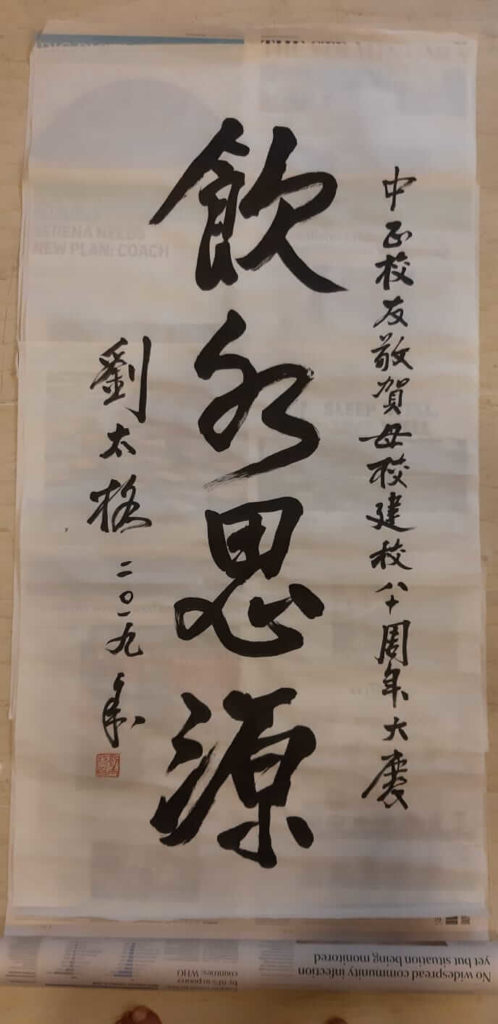 中正校友敬賀母校建校八十周年大慶
飲水思源
劉太格 二〇一九年
SERENA NEEDS
NEW PLAN: COACH
No widespread community infection
yet but situation being monitored
countries: WHO